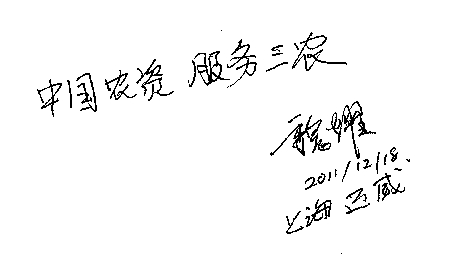 中国农资 服务三农
2011/12/18.
上海迈威